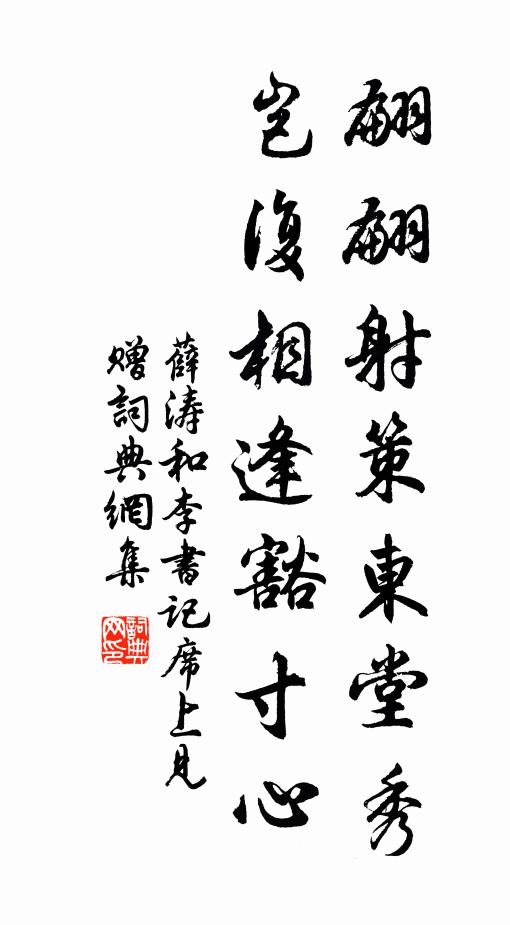 翩翩射策東堂秀
豈復相逢豁寸心
薛濤和李書記席上見
贈詞典網集
詞典网印